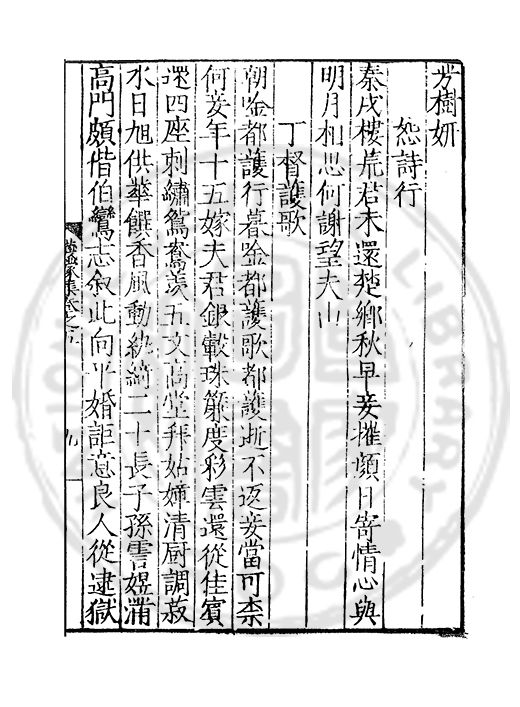 芳樹妍
怨詩行
秦戍樓荒君未還楚鄉秋早妾摧顏日寄情心與
明月相思何謝望夫山
丁督護歌
朝唫都護行暮唫都護歌都護逝不返妾當可柰
何妾年十五嫁夫君銀轂珠簾度彩雲還從佳賓
還四座刺繡鴛鴦羨五文高堂拜姑嫜清厨調菽
水日旭供蘋饌香風動紈綺二十長子孫雲嫛滿
高門頗偕伯鸞志叙此向平婚詎意良人從逮獄
卷之五
九